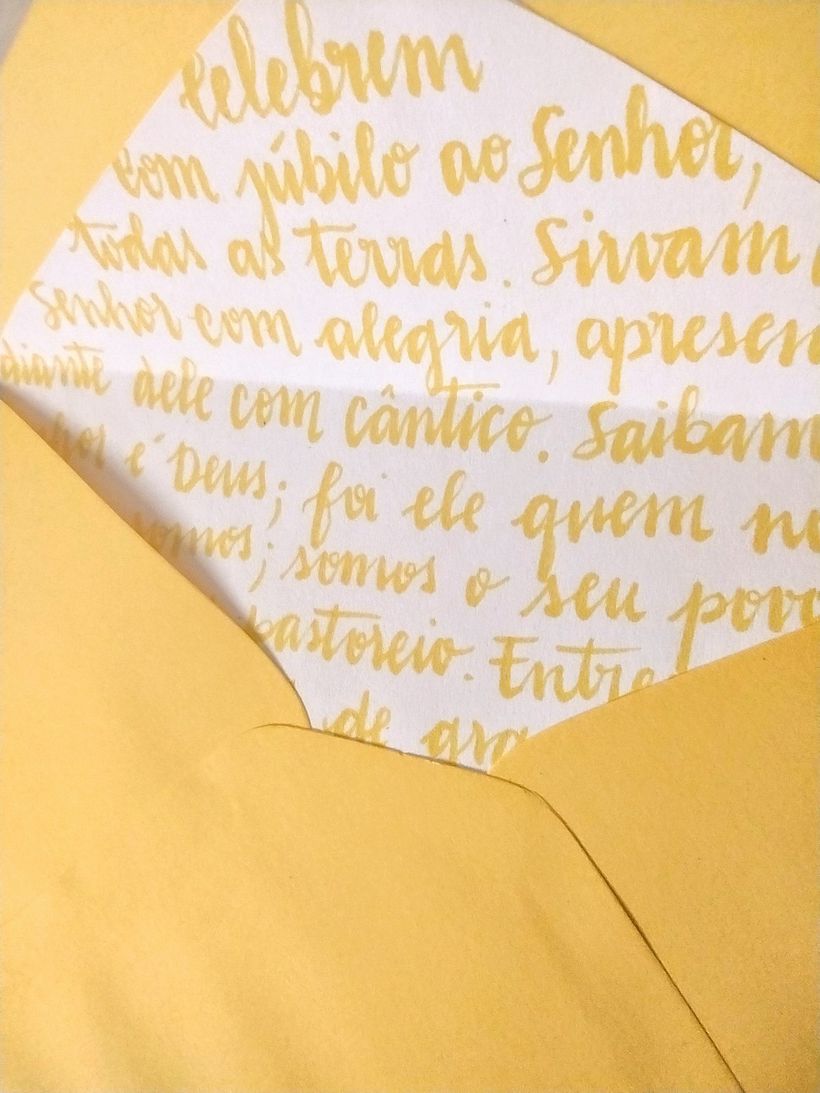 Celebrem
com júbilo ao Senhor,
todas as terras. Sirvam
Senhor com alegria, apresen
diante dele com cântico. Saibam
hor é Deus; foi ele quem no
somos; somos o seu povo
pastoreio. Entre
de gra